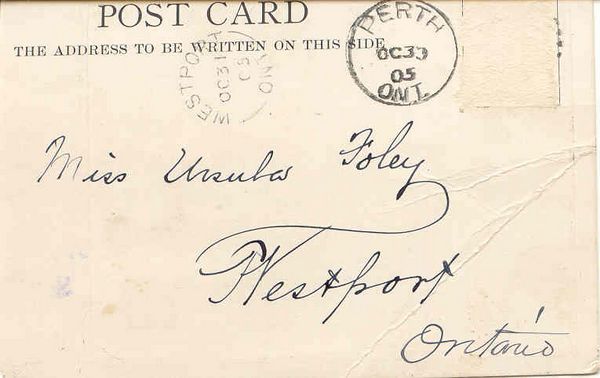 POST CARD
THE ADDRESS TO BE WRITTEN ON THIS SIDE
PERTH
OC 30
05
ONT.
WESTPORT
OC 31
05
ONT
Miss Ursula Foley
Westport
Ontario